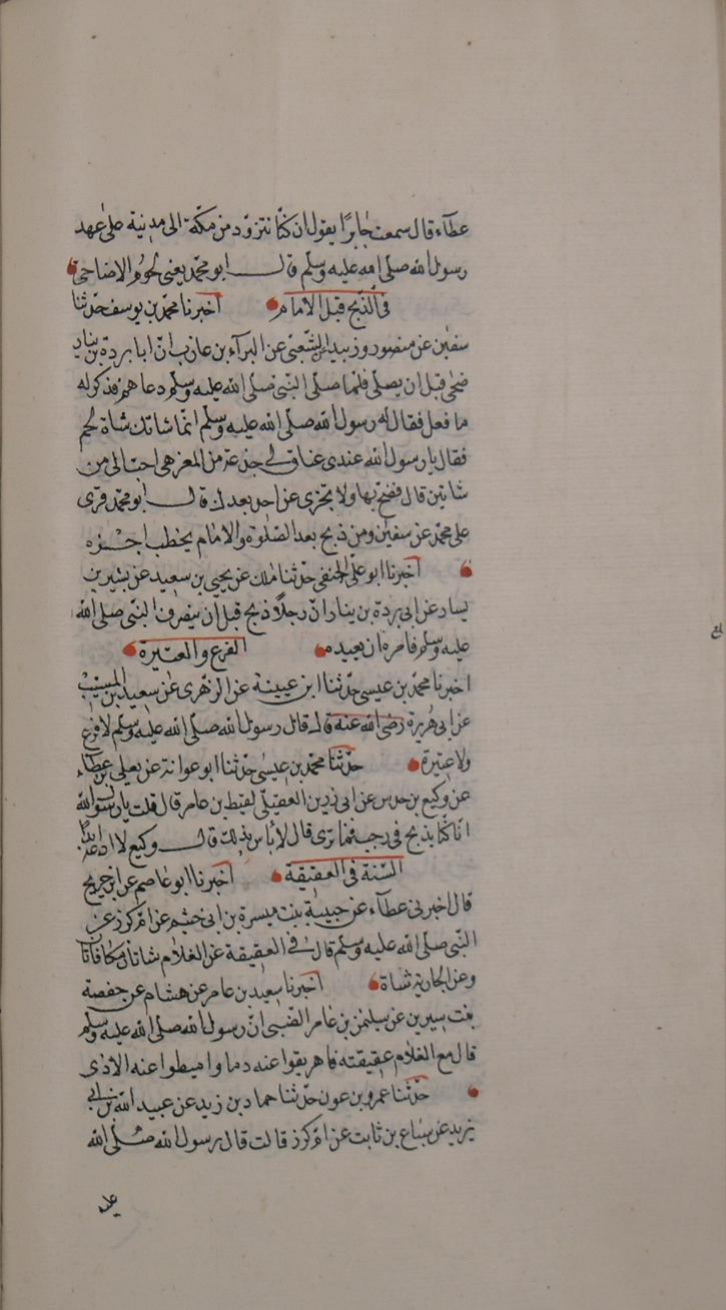 عطآء قال سمعت جابرًا يقول ان كنّا نتزود من مكّة الى مدينة على عهد
رسول الله صلى الله عليه وسلّم قال ابو محمّد يعنى لحوم الاضاحى
فى الذّبح قبل الامام اخبرنا محمّد بن يوسف حدّثنا
سفين عن منصور وزبيد الشّعبى عن البرآء بن عازب انّ ابا بردة بن نيار
ضحى قبل ان يصلى فلما صلى النّبى صلى الله عليه وسلم دعاه فذكر له
ما فعل فقال له رسول الله صلى الله عليه وسلّم انّما شاتك شاة لحم
فقال يا رسول الله عندى عناق لى جذعة من المعز هى احبّ الى من
شاتين قال فضح بها ولا تجزى عن احد بعدك قال ابو محمّد قرئ
على محمّد عن سفين ومن ذبح بعد الصّلوة والامام يخطب اجزه
اخبرنا ابو على الحنفى حدّثنا ملك عن يحيى بن سعيد عن بشير بن
يسار عن ابى بردة بن نيار انّ رجلًا ذبح قبل ان ينصرف النّبى صلى الله
عليه وسلم فامره ان يعيده الفرع والعتيرة
اخبرنا محمّد بن عيسى حدّثنا ابن عيينة عن الزّهرى عن سعيد بن المسيّب
عن ابى هريرة رضى الله عنه قال قال رسول الله صلى الله عليه وسلّم لا فرع
ولا عتيرة حدّثنا محمّد بن عيسى حدّثنا ابو عوانة عن يعلى بن عطآء
عن وكيع بن حدس عن ابى رزين العقيلى لقيط بن عامر قال قلت يا رسول الله
انّا كنّا نذبح فى رجب فما ترى قال لا بأس بذلك قال وكيع لا ادعه ابدًا
السّنة فى العقيقة اخبرنا ابو عاصم عن ابن جريج
قال اخبرنى عطآء عن حبيبة بنت ميسرة بن ابى خثيم عن امّ كرز عن
النّبى صلى الله عليه وسلم قال فى العقيقة عن الغلام شاتان مكافاتان
وعن الجارية شاة اخبرنا سعيد بن عامر عن هشام عن حفصة
بنت سيرين عن سليمن بن عامر الضّبى انّ رسول الله صلى الله عليه وسلم
قال مع الغلام عقيقته فاهريقوا عنه دما واميطوا عنه الاذى
حدّثنا عمرو بن عون حدّثنا حماد بن زيد عن عبيد الله بن ابى
يزيد عن سباع بن ثابت عن امّ كرز قالت قال رسول الله صلى الله
عليه